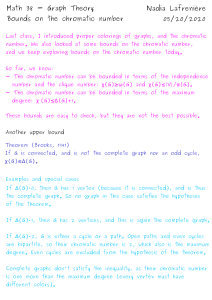 Math 38 – Graph Theory Nadia Lafrenière
Bounds on the chromatic number 05/20/2020
Last class, I introduced proper colorings of graphs, and the chromatic
number. We also looked at some bounds on the chromatic number,
and we keep exploring bounds on the chromatic number today.
So far, we know:
- The chromatic number can be bounded in terms of the independence
number and the clique number:
- The chromatic number can be bounded in terms of the maximum
degree: χ(G)≤Δ(G)+1.
These bounds are easy to check, but they are not the best possible.
Another upper bound
Theorem (Brooks, 1941)
If G is connected, and is not the complete graph nor an odd cycle,
χ(G)≤Δ(G).
Examples and special cases
If Δ(G)=0, then G has 1 vertex (because it is connected), and is thus
the complete graph. So no graph in the case satisfies the hypotheses
of the theorem.
If Δ(G)=1, then G has 2 vertices, and this is again the complete graph.
If Δ(G)=2, G is either a cycle or a path. Odd paths and even cycles
are bipartite, so their chromatic number is 2, which also is the maximum
degree. Even cycles are excluded from the hypothesis of the theorem.
Complete graphs don't satisfy the inequality, as their chromatic number
is one more than the maximum degree (every vertex must have
different colors).